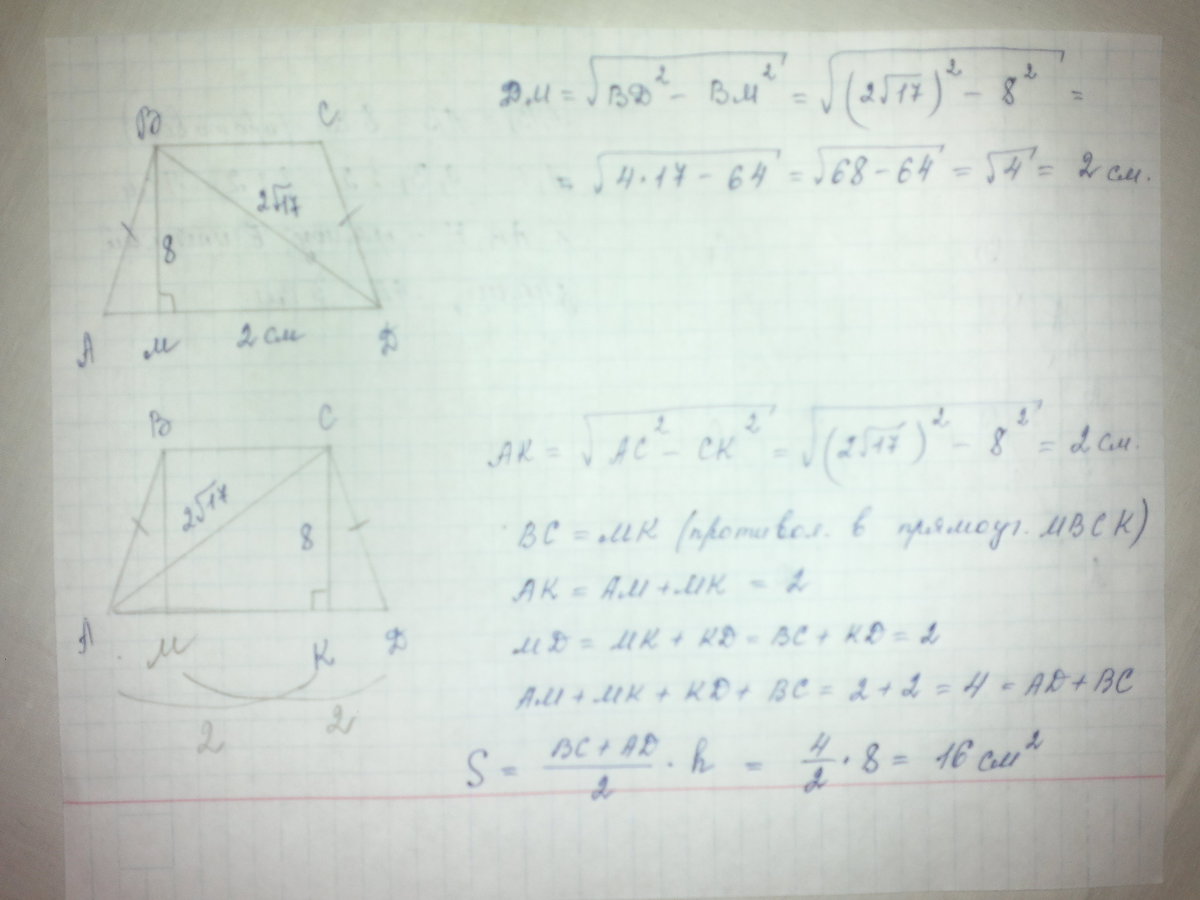 ДМ = √(BD² - BM²) = √((2√17)² - 8²) =
= √(4·17 - 64) = √(68-64) = √4 = 2 см.
B C
2√17
8
A М 2 см D
B C
2√17
8
A М K D
2 2
AK = √(AC² - CK²) = √((2√17)² - 8²) = 2 см.
BC = МК (противол. в прямоуг. MBCK)
AK = AM + MK = 2
MD = MK + KD = BC + KD = 2
AM + MK + KD + BC = 2 + 2 = 4 = AD + BC
S = (BC + AD)/2 · h = 4/2 · 8 = 16 см²